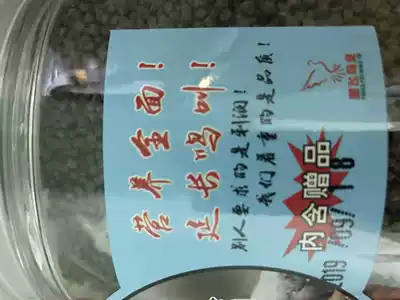 营养全面!
延长鸣叫!
别人要求的是利润!
我们着重的是品质!
内含赠品
2019/09/18